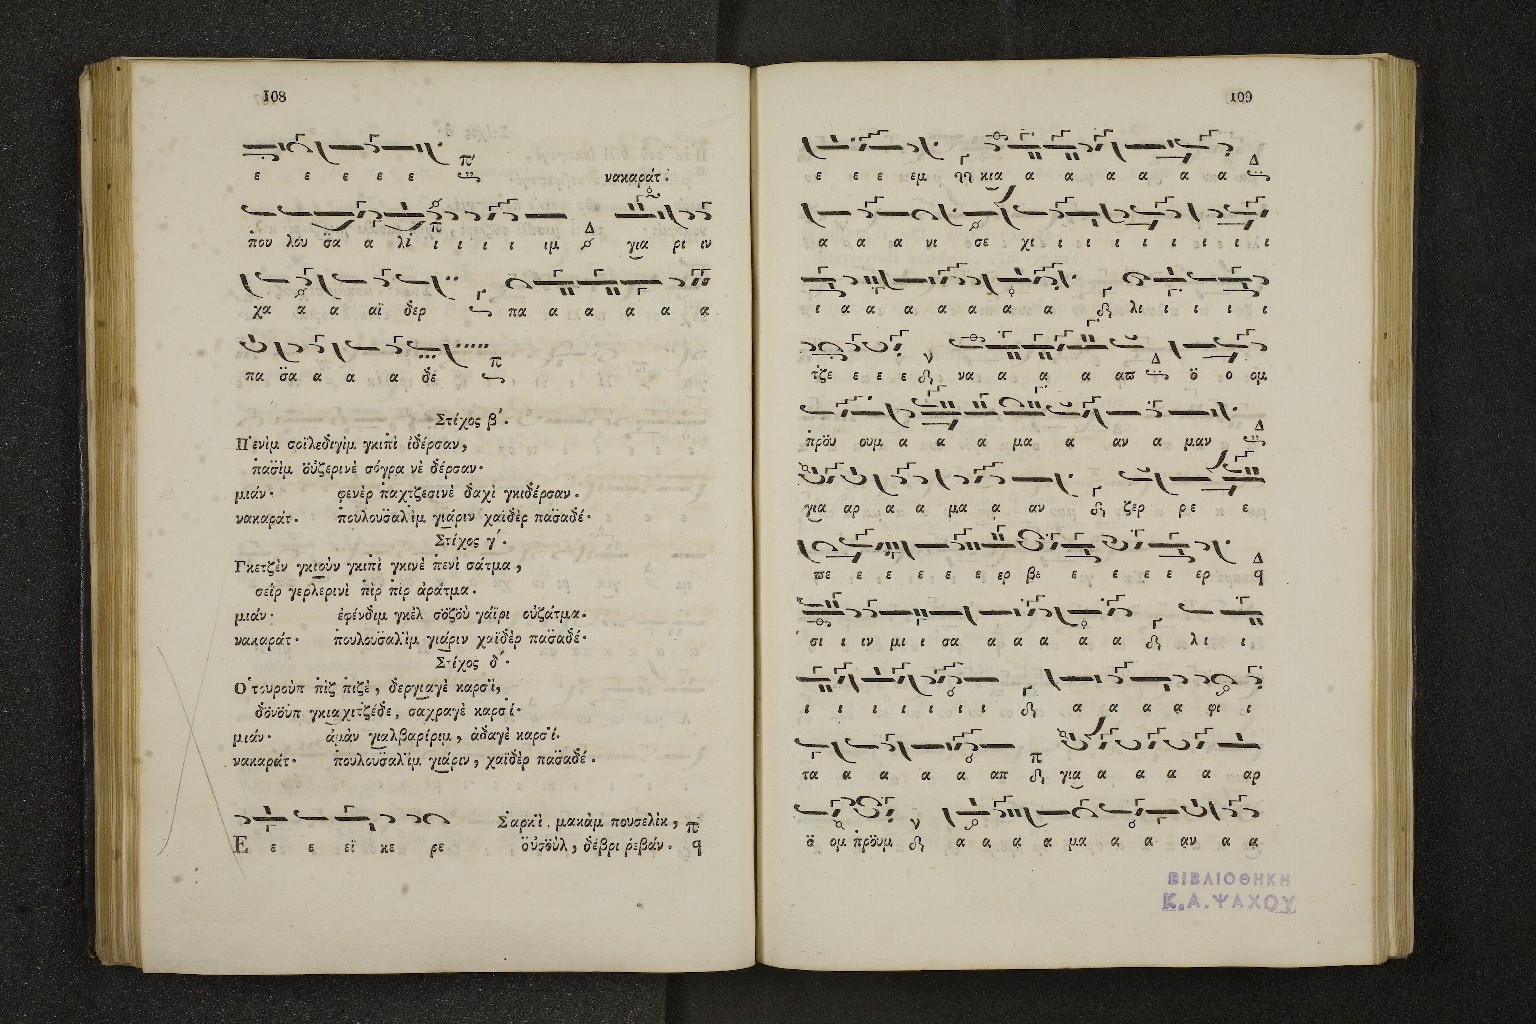 108
ε ε ε ε ε
νακαράτ·
π̇ου λου σ̈α α λι ι ι ι ι ιμ Δ για ρι ιν
χα α α αϊ δερ πα α α α α α
πα σ̈α α α α δέ
Στίχος β΄.
Π̇ενὶμ σοϊλεδιγὶμ γκιπὶ ἰδέρσαν,
π̇ασ̈ὶμ οὐζερινὲ σόγρα νὲ δέρσαν·
μιάν· φενὲρ π̇αχτζεσινὲ δαχὶ γκιδέρσαν.
νακαράτ. π̇ουλουσ̈αλὶμ γιάριν χαϊδὲρ πασ̈αδέ·
Στίχος γ΄.
Γκετζὲν γκιοὺν γκιπὶ γκινὲ π̇ενὶ σάτμα,
σεὶρ γερλερινὶ π̇ὶρ π̇ὶρ ἀράτμα.
μιάν· ἐφένδιμ γκὲλ σὸζοὺ γαϊρι οὐζάτμα.
νακαράτ· π̇ουλουσ̈αλὶμ γιάριν χαϊδὲρ πασ̈αδέ·
Στίχος δ΄.
Ὀτουροὺπ π̇ὶζ π̇ιζὲ, δεργιαγὲ καρσ̈ὶ,
δὀνοὺπ γκιαχιτζέδε, σαχραγὲ καρσ̈ί·
μιάν· ἀμὰν γιαλβαρίριμ, ἀδαγὲ καρσ̈ί.
νακαράτ· π̇ουλουσ̈αλὶμ γιάριν, χαϊδὲρ πασ̈αδέ.
Σ̈αρκὶ, μακὰμ πουσελὶκ, π
Ε ε ε εϊ κε ρε οὐσοὺλ, δέβρι ῥεβάν. q
109
ε ε ε εμ κια α α α α α α Δ
α α α νι σε χι ι ι ι ι ι ι ι ι
ι α α α α α α α α λι ι ι ι ι
τζε ε ε ε να α α α απ Δ ὸ ο ομ
π̇ρὸυ ουμ α α α μα α αν α μαν Δ
για αρ α α μα α αν ζερ ρε ε
πε ε ε ε ε ε ερ βε ε ε ε ε ερ Δ q
σι ι ιν μι ι σα α α α α α λι ι
ι ι ι ι ι ι ι α α α α φι ι
τα α α α α απ π για α α α α αρ
ὸ ομ π̇ρὸυμ α α α α μα α α αν α α
ΒΙΒΛΙΟΘΗΚΗ
Κ. Α. ΨΑΧΟΥ